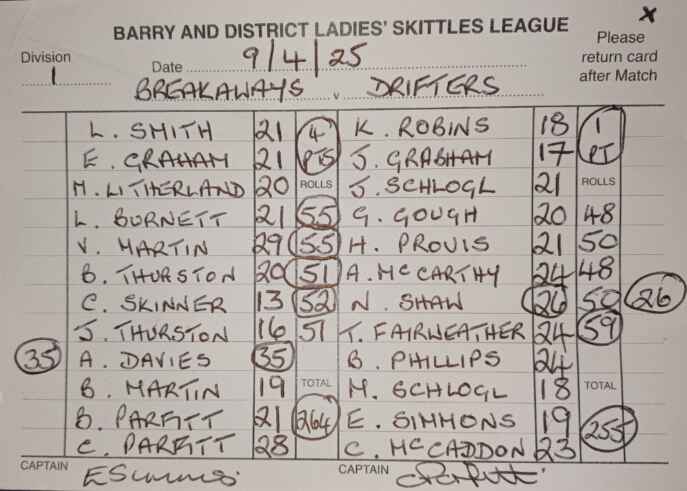 BARRY AND DISTRICT LADIES' SKITTLES LEAGUE X
Division 1 Date 9/4/25 Please return card after Match
BREAKAWAYS v DRIFTERS
L. SMITH 21 4 K. ROBINS 18 1
E. GRAHAM 21 PTS J. GRABHAM 17 PT
M. LITHERLAND 20 ROLLS J. SCHLOGL 21 ROLLS
L. BURNETT 21 55 G. GOUGH 20 48
V. MARTIN 29 55 H. PROVIS 21 50
B. THURSTON 20 51 A. McCARTHY 24 48
C. SKINNER 13 52 N. SHAW 26 50 26
J. THURSTON 16 51 T. FAIRWEATHER 24 59
35 A. DAVIES 35 B. PHILLIPS 24
B. MARTIN 19 TOTAL M. SCHLOGL 18 TOTAL
B. PARFITT 21 264 E. SIMMONS 19 255
C. PARFITT 28 C. McCADDON 23
CAPTAIN E Simmons CAPTAIN C Parfitt